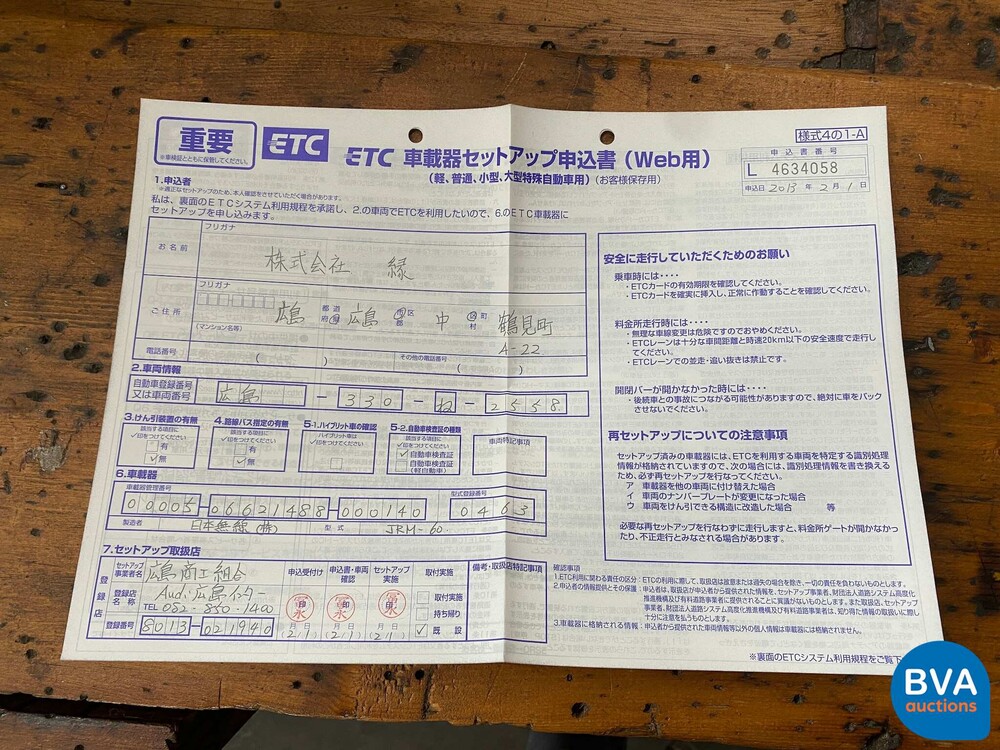 重要
※車検証とともに保管してください。
ETC
ETC 車載器セットアップ申込書（Web用）
（軽、普通、小型、大型特殊自動車用）（お客様保存用）
様式4の1-A
申込書番号
L 4634058
申込日 2013 年 2 月 1 日
1.申込者
※適正なセットアップのため、本人確認をさせていただく場合があります。
私は、裏面のETCシステム利用規程を承諾し、2.の車両でETCを利用したいので、6.のETC車載器に
セットアップを申し込みます。
フリガナ
お名前
株式会社 緑
フリガナ
ご住所
広島 都道府県 広島 市区郡 中 区町村 鶴見町
(マンション名等)
4-22
電話番号 ( ) その他の電話番号 ( )
2.車両情報
自動車登録番号
又は車両番号
広島 - 330 - ね - 2558
3.けん引装置の有無
該当する項目に
✓印をつけてください
有
✓無
4.路線バス指定の有無
該当する項目に
✓印をつけてください
有
✓無
5-1.ハイブリッド車の確認
ハイブリッド車は
✓印をつけてください
5-2.自動車検査証の種類
該当する項目に
✓印をつけてください
✓自動車検査証
自動車検査証
(軽自動車)
車両特記事項
6.車載器
車載器管理番号
00005-06621488-000140
型式登録番号
0463
製造者 日本無線(株) 型式 JRM-60
7.セットアップ取扱店
登録店
セットアップ
事業者名
広島商工組合
登録店
名称
Audi広島インター
TEL 082-850-1400
登録番号 8013-021940
申込受付け
申込書・車両
確認
セットアップ
実施
取付実施
冨印永
冨印永
冨印永
月 日
月 日
月 日
(2/1)
(2/1)
(2/1)
取付実施
持ち帰り
✓ 既設
備考・取扱店特記事項
安全に走行していただくためのお願い
乗車時には・・・・
・ETCカードの有効期限を確認してください。
・ETCカードを確実に挿入し、正常に作動することを確認してください。
料金所走行時には・・・・
・無理な車線変更は危険ですのでおやめください。
・ETCレーンは十分な車間距離と時速20km以下の安全速度で走行し
てください。
・ETCレーンでの並走・追い抜きは禁止です。
開閉バーが開かなかった時には・・・・
・後続車との事故につながる可能性がありますので、絶対に車をバック
させないでください。
再セットアップについての注意事項
セットアップ済みの車載器には、ETCを利用する車両を特定する識別処理
情報が格納されていますので、次の場合には、識別処理情報を書き換える
ため、必ず再セットアップを行なってください。
ア 車載器を他の車両に付け替えた場合
イ 車両のナンバープレートが変更になった場合
ウ 車両をけん引できる構造に改造した場合 等
必要な再セットアップを行なわずに走行しますと、料金所ゲートが開かなかっ
たり、不正走行とみなされる場合があります。
確認事項
1.ETCに関わる責任の区分：ETCの利用に際して、取扱店は故意または過失の場合を除き、一切の責任を負わないものとします。
2.申込者の情報提供とその保護：申込者は、取扱店が申込者から提供された情報を、セットアップ事業者、財団法人道路システム高度化
推進機構及び有料道路事業者に提供されることに異議がないものとします。また、取扱店、セットアップ
事業者、財団法人道路システム高度化推進機構及び有料道路事業者は、知り得た情報の取扱いに際し
十分に注意が払うものとします。
3.車載器に格納される情報：申込者から提供された車両情報等以外の個人情報は車載器には格納されません。
※裏面のETCシステム利用規程をご覧下
BVA
auctions